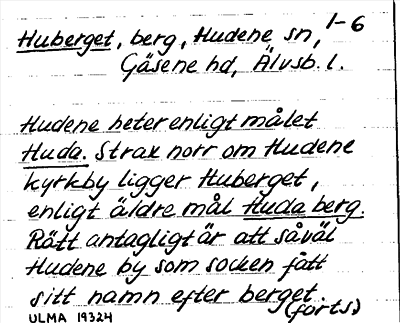 1-6
Huberget, berg, Hudene sn,
Gäsene hd, Älvsb. l.
Hudene heter enligt målet
Huda. Strax norr om Hudene
kyrkby ligger Huberget,
enligt äldre mål Huda berg.
Rätt antagligt är att såväl
Hudene by som socken fått
sitt namn efter berget.
(forts)
ULMA 19324